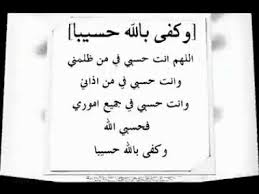 [وكفى بالله حسيبا]
اللهم انت حسبي في من ظلمني
وانت حسبي في من اذاني
وانت حسبي في جميع اموري
فحسبي الله
وكفى بالله حسيبا